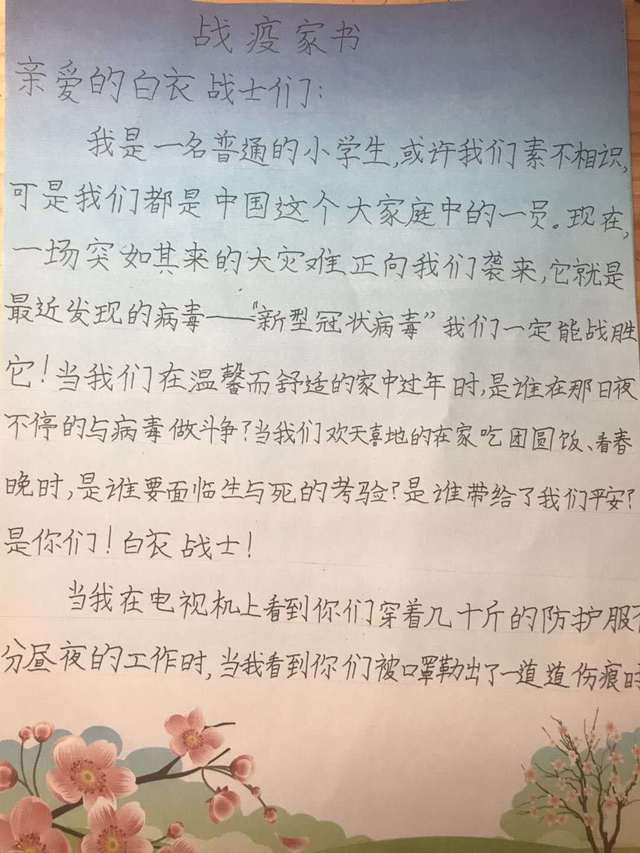 战疫家书
亲爱的白衣战士们:
我是一名普通的小学生,或许我们素不相识,
可是我们都是中国这个大家庭中的一员。现在,
一场突如其来的大灾难正向我们袭来,它就是
最近发现的病毒——“新型冠状病毒”我们一定能战胜
它!当我们在温馨而舒适的家中过年时,是谁在那日夜
不停的与病毒做斗争?当我们欢天喜地的在家吃团圆饭、看春
晚时,是谁要面临生与死的考验?是谁带给了我们平安?
是你们!白衣战士!
当我在电视机上看到你们穿着几十斤的防护服不
分昼夜的工作时,当我看到你们被口罩勒出了一道道伤痕时